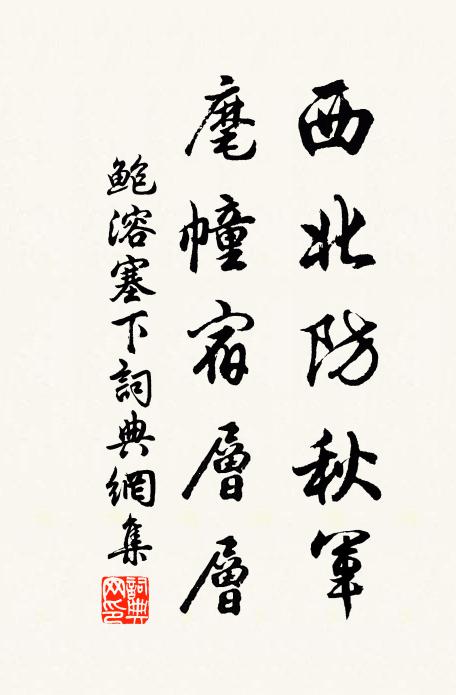 西北防秋軍
麾幢宿層層
鮑溶塞下詞典網集
詞典網印